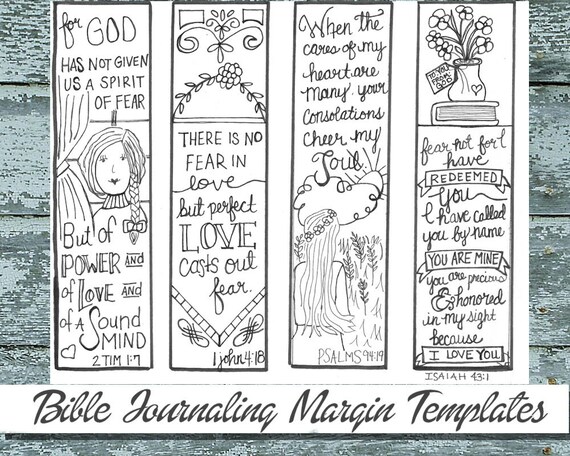 for GOD
HAS NOT GIVEN
US A SPIRIT
OF FEAR
But of
POWER AND
of LOVE AND
of A Sound
MIND
2 TIM 1:7
THERE IS NO
FEAR IN
love
but perfect
LOVE
casts out
fear.
1 john 4:18
When the
cares of my
heart are
many, your
consolations
cheer my
Soul.
PSALMS 94:19
TO YOU
FROM
GOD
fear not for I
have
REDEEMED
You
I have called
you by name
YOU ARE MINE
you are precious
& honored
in my sight
because
I LOVE YOU
ISAIAH 43:1
Bible Journaling Margin Templates